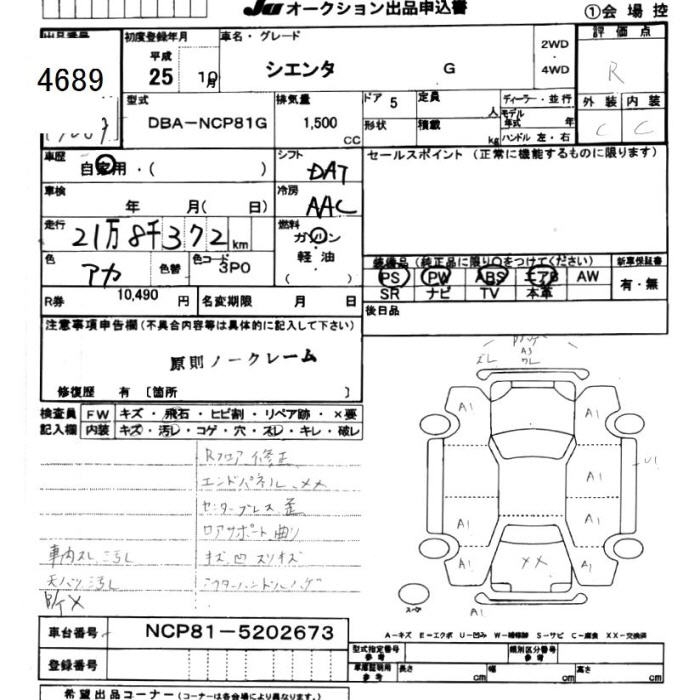 JU オークション出品申込書 ①会場控
初度登録年月 車名・グレード 2WD・4WD 評価点
4689 平成 25 10月 シエンタ G R
型式 排気量 ドア 5 定員 人 ディーラー・並行 外装 内装
DBA-NCP81G 1,500 cc 形状 積載 kg モデル年式 年 ハンドル 左・右 C C
車歴 自家用・( ) シフト DAT セールスポイント (正常に機能するものに限ります)
車検 年 月( 日) 冷房 AAC
走行 21万8千372km 燃料 ガソリン 軽油 ( )
色 アカ 色替 色コード 3P0
装備品 (純正品に限り○をつけてください) 新車保証書
PS PW ABS エアB AW 有・無
SR ナビ TV 本革
R券 10,490 円 名変期限 月 日 後日品
注意事項申告欄 (不具合内容等は具体的に記入して下さい)
原則ノークレーム
修復歴 有 〔箇所 〕
検査員 FW キズ・飛石・ヒビ割・リペア跡・×要
記入欄 内装 キズ・汚レ・コゲ・穴・スレ・キレ・破レ
Rフロア 修正
エンドパネル ××
センターブレス 歪
ロアサポート 曲り
車内スレ 汚レ キズ凹スリキズ
天バリ汚レ
ズレ A3
A1 A1
A1 U1
A1 A1
×× 
スペア A1
車台番号 NCP81-5202673
登録番号
A-キズ E-エクボ U-凹み W-補修跡 S-サビ C-腐食 XX-交換済
型式指定番号 参考 類別区分番号 参考
車庫証明用 参考 長さ cm 幅 cm 高さ cm
希望出品コーナー (コーナーは各会場により異なります)